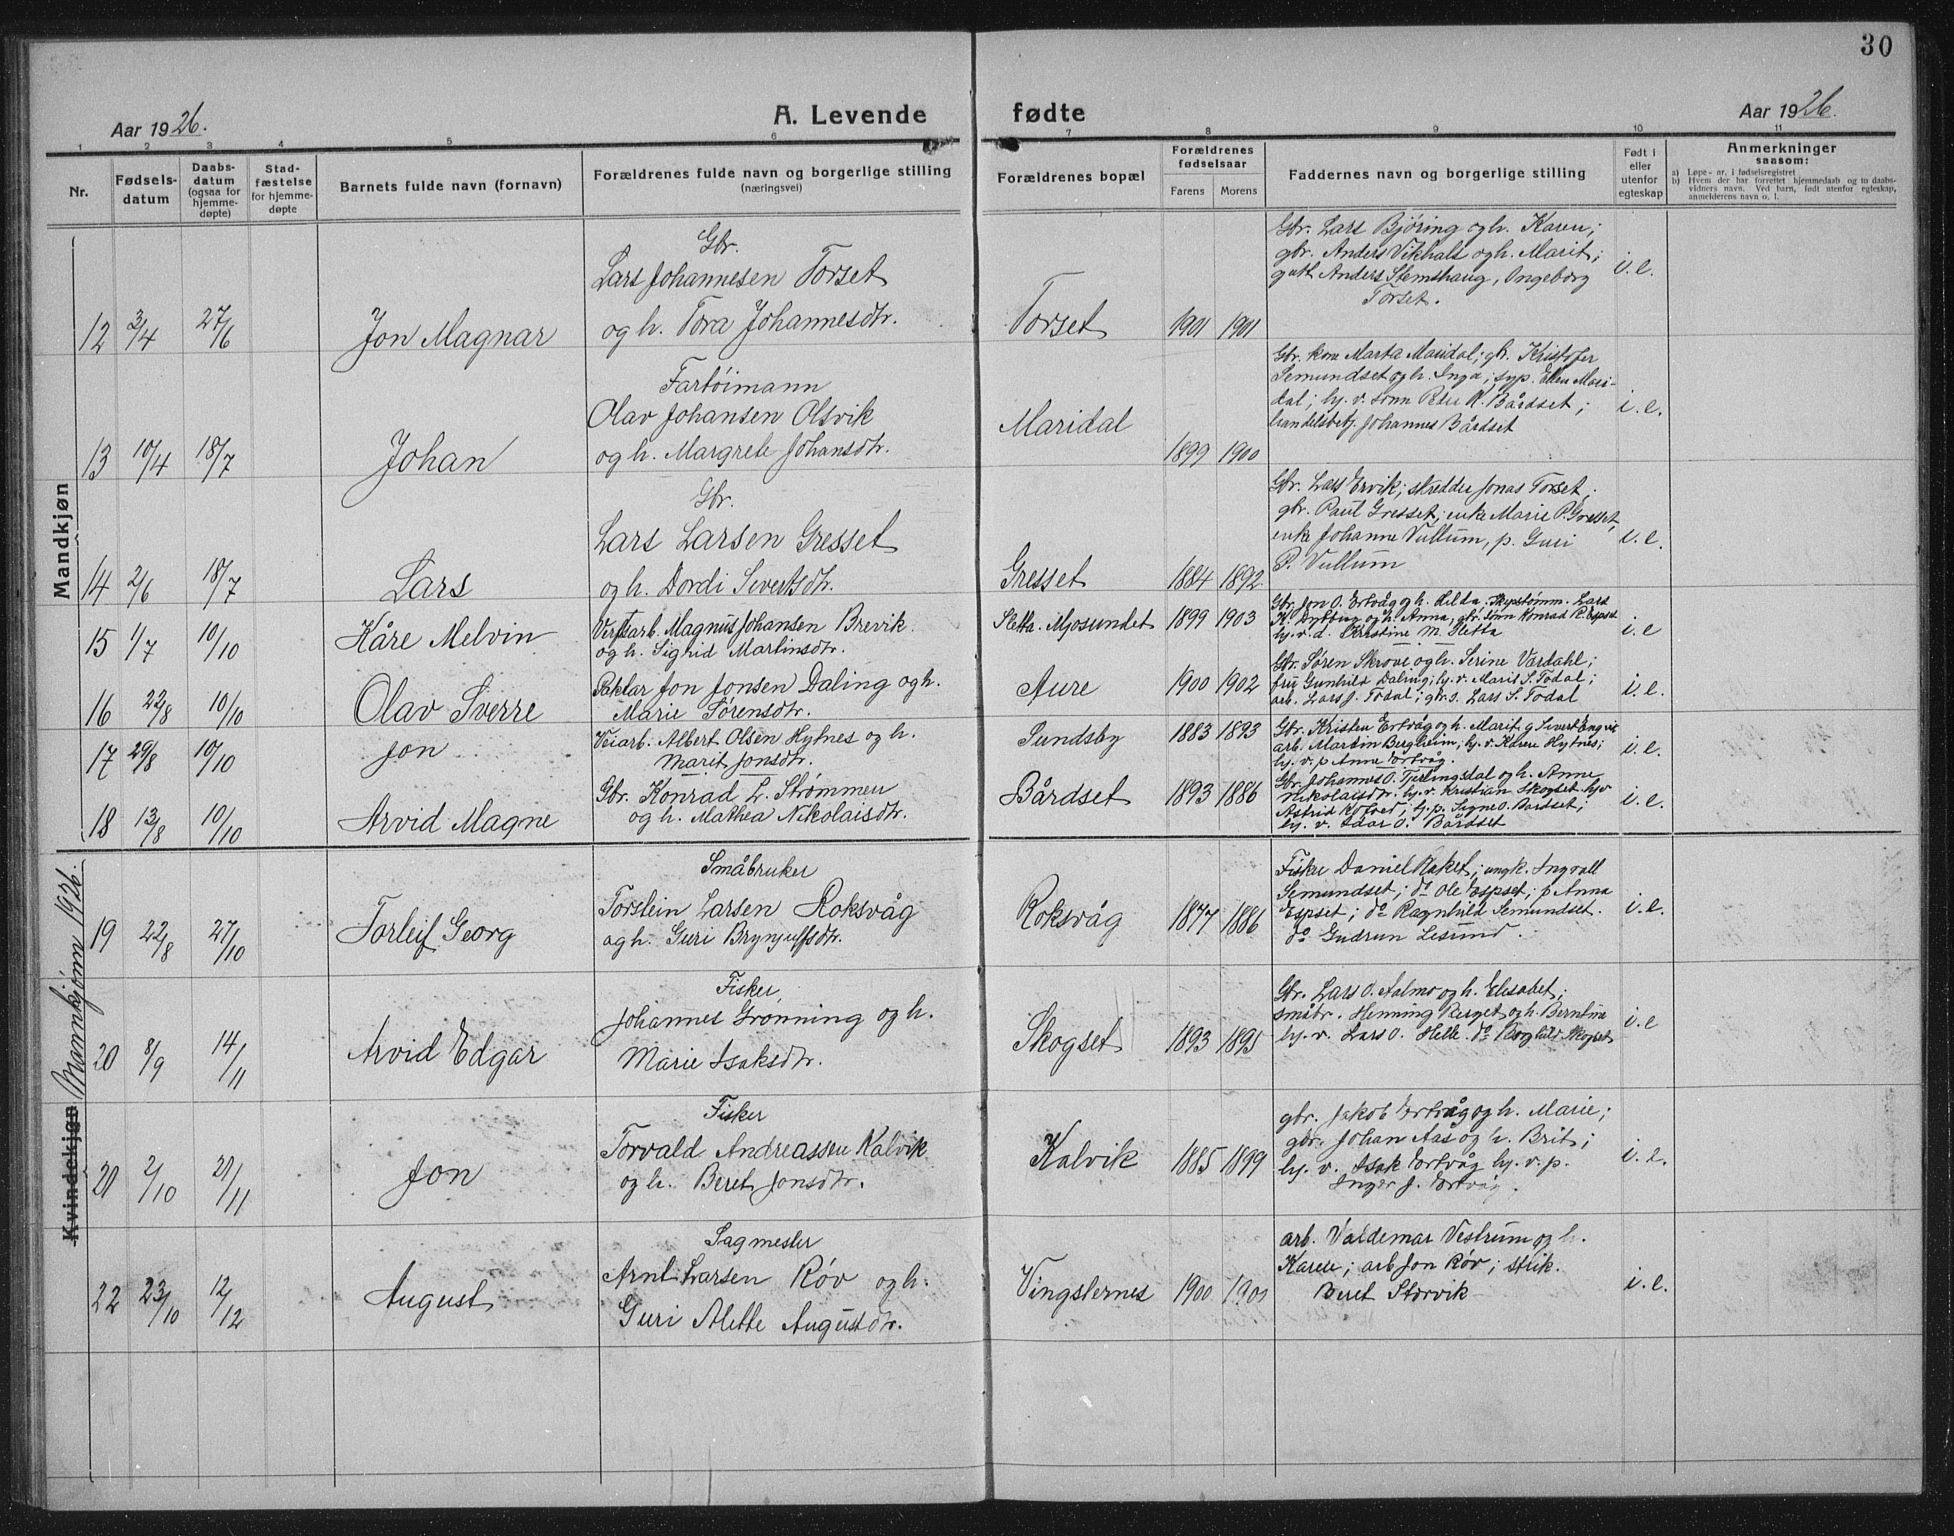 30
Aar 1926. A. Levende fødte Aar 1926.
1 2 3 4 5 6 7 8 9 10 11
Nr.
Fødsels-
datum
Daabs-
datum
(ogsaa for
hjemme-
døpte)
Stad-
fæstelse
for hjemme-
døpte
Barnets fulde navn (fornavn)
Forældrenes fulde navn og borgerlige stilling
(næringsvei)
Forældrenes bopæl
Forældrenes
fødselsaar
Farens Morens
Faddernes navn og borgerlige stilling
Født i
eller
utenfor
egteskap
Anmerkninger
saasom:
a) Løpe-nr. i fødselsregistret
b) Hvem der har forrettet hjemmedaab og to daabs-
vidners navn. Ved barn, født utenfor egteskap,
anmelderens navn o. l.
Mandkjøn
12 3/4 27/6 Jon Magnar
Gbr.
Lars Johannesen Torset
og h. Tora Johannesdtr.
Torset 1901 1901
Gbr. Lars Bjøring og h. Karen;
gbr. Anders Vikhals og h. Marit;
gutt Anders Stemshaug, Ingeborg
Torset.
i. e.
13 10/4 18/7 Johan
Fartøimann
Olav Johansen Olsvik
og h. Margrete Johansdtr.
Maridal 1899 1900
Gbr. kone Marta Maridal; gbr. Kristofer
Semundset og h. Inga; syp. Ellen Mari-
dal; hj. v. sønn Peder K. Bårdset;
handelsbetj. Johannes Bårdset
i. e.
14 2/6 18/7 Lars
Gbr.
Lars Larsen Gresset
og h. Dordi Sivertsdtr.
Gresset 1884 1892
Gbr. Lars Ervik; skredder Jonas Torset;
gbr. Paul Gresset; enke Marie P. Gresset,
enke Johanne Vullum, p. Guri
P. Vullum
i. e.
15 1/7 10/10 Kåre Melvin
Verftsarb. Magnus Johansen Brevik
og h. Sigrid Martinsdtr.
Sletta. Mjosundet 1899 1903
Gbr. Jon O. Ertvåg og h. Hilda. Lars
K. og h. Anna, gbr. sønn Konrad R. Espset
hj. v. d. Kristine M. Sletta
i. e
16 22/8 10/10 Olav Sverre
Paktar Jon Jonsen Daling og h.
Marie Sørensdtr.
Aure 1900 1902
Gbr. Søren Skrove og h. Serine Vardahl;
fru Gunhild Daling; hj. v. Marit S. Todal;
arb. Lars J. Todal; gbr. s. Lars S. Todal
i. e.
17 29/8 10/10 Jon
Veiarb. Albert Olsen Hytnes og h.
Marit Jonsdtr.
Sundsby 1883 1893
Gbr. Kristen Ertvåg og h. Marit, g Sivert Engvik
arb. Martin Bergheim, hj. v. Karen Hytnes;
hj. v. p Anne Ertvåg.
i. e.
18 13/8 10/10 Arvid Magne
Gbr. Konrad L. Strømmen
og h. Mathea Nikolaisdtr.
Bårdset 1893 1886
Gbr. Johannes O. Tjerlingsdal og h. Anne
Nikolaisdtr. hj. v. Kristian Skogset hj. v
Astrid; hj. p. Signe O. Bårdset;
hj. v. Idar O. Bårdset
i. e.
Kvindekjøn Mannkjønn 1926.
19 22/8 27/10 Torleif Georg
Småbruker
Torstein Larsen Roksvåg
og h. Guri Brynjulfsdtr.
Roksvåg 1877 1886
Fisker Daniel Raket; ungk. Ingvall
Semundset; do Ole Espset; p Anna
Espset; do Ragnhild Semundset.
do Gudrun Lesund.
i. e.
20 8/9 14/11 Arvid Edgar
Fisker
Johannes Grønning og h.
Marie Isaksdtr.
Skogset 1893 1895
Gbr. Lars O. Aalmo og h. Elisabet;
småbr. Henning Berget og h. Berntine
hj. v. Lars O. Helle. do Ragnhild Skogset
i. e
20 2/10 21/11 Jon
Fisker
Torvald Andreassen Kalvik
og h. Beret Jonsdtr.
Kalvik 1885 1899
gbr. Jakob Ertvåg og h. Marie;
gbr. Johan Aas og h. Brit;
hj. v. Isak Ertvåg hj. v. p.
Inger J. Ertvåg.
i. e.
22 23/10 12/12 August
Sagmester
Arnt Larsen Røv og h.
Guri Alette Augustdtr.
Vingsternes 1900 1901
arb. Valdemar Vestrum og h.
Karen; arb Jon Røv; strik.
Beret Storvik
i. e.